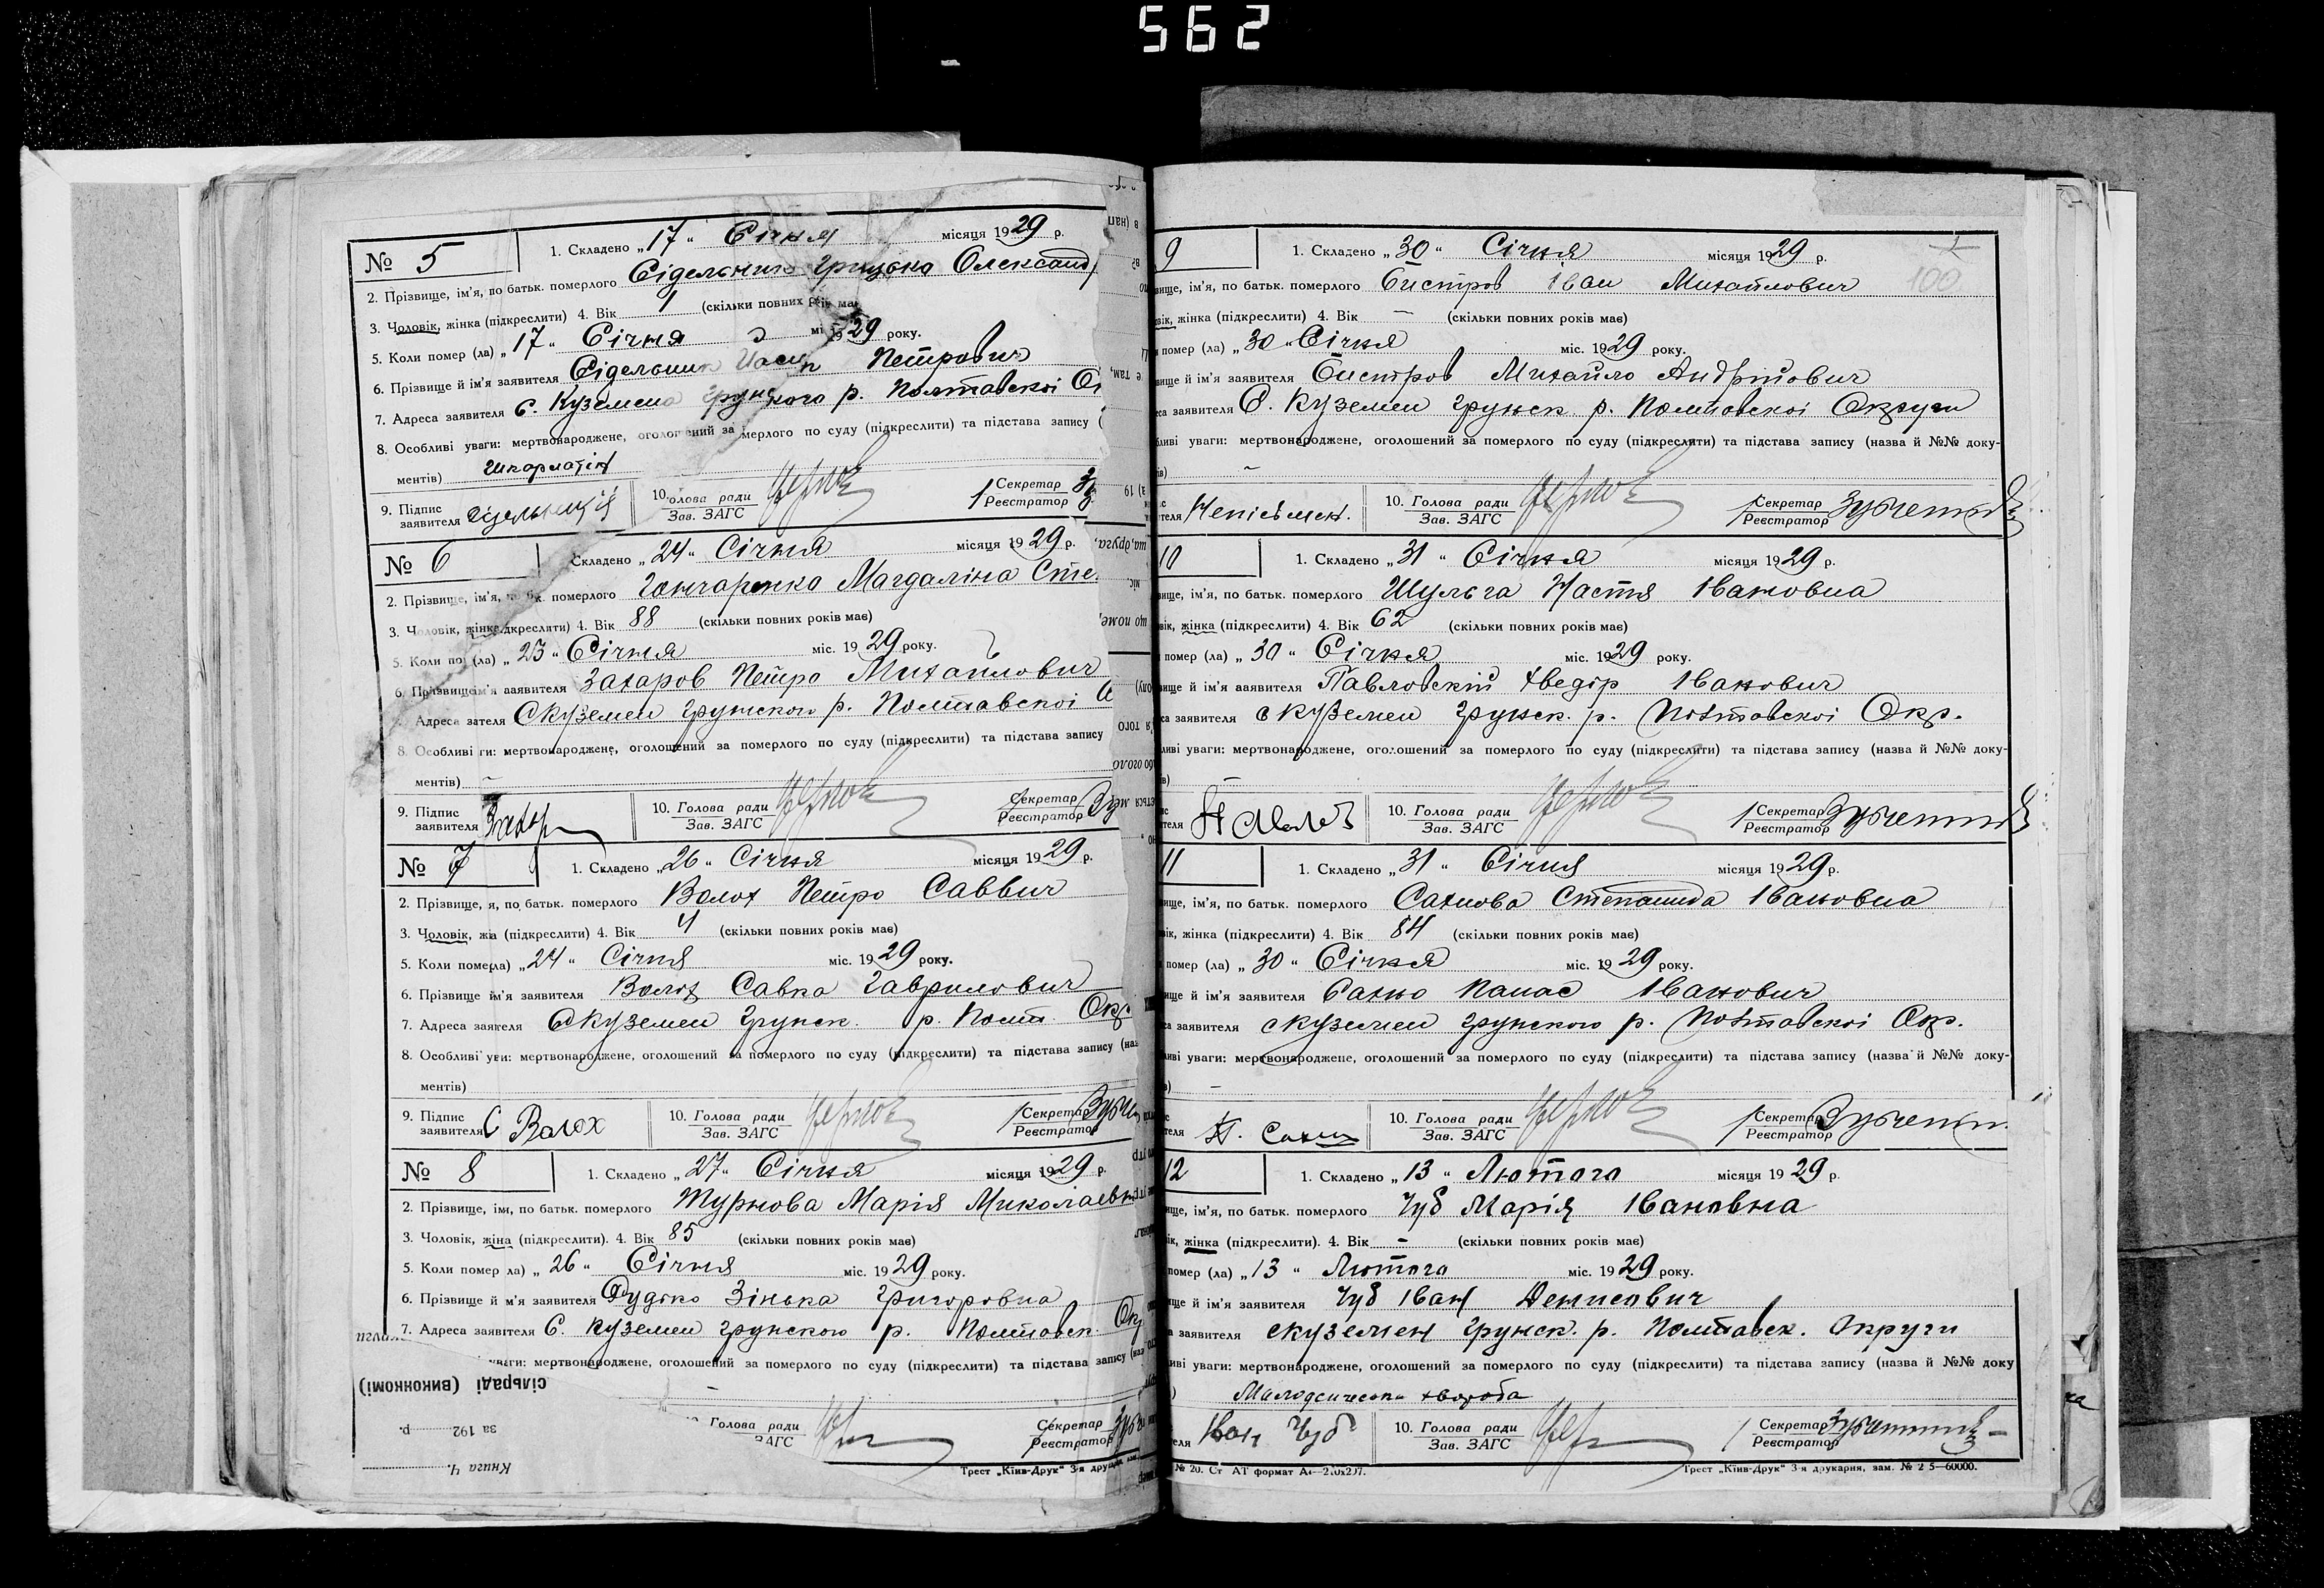 562
№ 5
1. Складено „17“ Січня місяця 1929 р.
2. Прізвище, ім'я, по батьк. померлого Сідельник Грицько Олександр
3. Чоловік, жінка (підкреслити) 4. Вік 1 (скільки повних років має
5. Коли помер (ла) „17“ Січня мі 1929 року.
6. Прізвище й ім'я заявителя Сідельник Иосип Петрович
7. Адреса заявителя с. Куземен грунского р. Полтавскої Ок
8. Особливі уваги: мертвонароджене, оголошений за померлого по суду (підкреслити) та підстава запису (
ментів) шкарлатін
9. Підпис заявителя 10. Голова ради Зав. ЗАГС Секретар Реєстратор
№ 6
Складено „24“ Січня місяця 1929 р.
2. Прізвище, ім'я, по бк. померлого Гончаренко Магдаліна Сте
3. Чоловік, жінка дкреслити) 4. Вік 88 (скільки повних років має)
5. Коли по (ла) „23“ Січня міс. 1929 року.
6. Прізвище ім'я заявителя Захаров Петро Михайлович
Адреса зателя С Куземен грунского р. Полтавскої
8. Особливі ги: мертвонароджене, оголошений за померлого по суду (підкреслити) та підстава запису
ментів) –
9. Підпис заявителя Захар 10. Голова ради Зав. ЗАГС Секретар Реєстратор
№ 7
1. Складено „26“ Січня місяця 1929 р.
2. Прізвище, я, по батьк. померлого Волох Петро Саввич
3. Чоловік, жа (підкреслити) 4. Вік 4 (скільки повних років має)
5. Коли помела) „24“ Січня міс. 1929 року.
6. Прізвище ім'я заявителя Волох Савка Гаврилович
7. Адреса заявтеля С Куземен Грунск. р. Полт. Окр.
8. Особливі уги: мертвонароджене, оголошений за померлого по суду (підкреслити) та підстава запису (наз
ментів)
9. Підпис заявителя С Волох 10. Голова ради Зав. ЗАГС Секретар Реєстратор
№ 8
1. Складено „27“ Січня місяця 1929 р.
2. Прізвище, імя, по батьк. померлого Турнова Марія Миколаевн
3. Чоловік, жіна (підкреслити). 4. Вік 85 (скільки повних років має)
5. Коли помер ла) „26“ Січня міс. 1929 року.
6. Прізвище й м'я заявителя Дудко Зінька Григоровна
7. Адреса заявітеля С. Куземен грунского р. Полтавск. Окр
уваги: мертвонароджене, оголошений за померлого по суду (підкреслити) та підстава запису (наз
сільраді (виконкомі)
за 192 р.
Книга ч.
Голова ради ЗАГС Секретар Реєстратор
Трест „Київ-Друк“ 3-я друкарня
9
1. Складено „30“ Січня місяця 1929 р.
100
вище, ім'я, по батьк. померлого Бистров Іван Михайлович
вік, жінка (підкреслити) 4. Вік — (скільки повних років має)
помер (ла) „30“ Січня міс. 1929 року.
вище й ім'я заявителя Бистров Михайло Андрійович
са заявителя С. Куземен грунск р. Полтавскої Округи
бливі уваги: мертвонароджене, оголошений за померлого по суду (підкреслити) та підстава запису (назва й №№ доку-
ів) –
теля Неписьмен. 10. Голова ради Зав. ЗАГС Секретар Реєстратор
10
1. Складено „31“ Січня місяця 1929 р.
вище, ім'я, по батьк. померлого Шульга Настя Івановна
вік, жінка (підкреслити) 4. Вік 62 (скільки повних років має)
помер (ла) „30“ Січня міс. 1929 року.
вище й ім'я заявителя Павловскій Хведір Іванович
са заявителя с Куземен грунск. р. Полтавскої Окр.
ливі уваги: мертвонароджене, оголошений за померлого по суду (підкреслити) та підстава запису (назва й №№ доку-
в) –
теля 10. Голова ради Зав. ЗАГС Секретар Реєстратор
11
1. Складено „31“ Січня місяця 1929 р.
вище, ім'я, по батьк. померлого Сахнова Степанида Івановна
вік, жінка (підкреслити) 4. Вік 84 (скільки повних років має)
помер (ла) „30“ Січня міс. 1929 року.
вище й ім'я заявителя Сахно Панас Іванович
са заявителя с Куземен грунского р. Полтавскої Окр.
ливі уваги: мертвонароджене, оголошений за померлого по суду (підкреслити) та підстава запису (назва й №№ доку-
в) –
теля П. Сахно 10. Голова ради Зав. ЗАГС Секретар Реєстратор
12
1. Складено „13“ Лютого місяця 1929 р.
ище, ім'я, по батьк. померлого Чуб Марія Івановна
ік, жінка (підкреслити). 4. Вік – (скільки повних років має)
помер (ла) „13“ Лютого міс. 1929 року.
ище й ім'я заявителя Чуб Іван Денисович
а заявителя с Куземен Грунск. р. Полтавск. Округи
ливі уваги: мертвонароджене, оголошений за померлого по суду (підкреслити) та підстава запису (назва й №№ доку
) хвороба
еля Іван Чуб 10. Голова ради Зав. ЗАГС Секретар Реєстратор
№ 20. Ст АТ формат А4—210х297.
Трест „Київ-Друк“ 3-я друкарня, зам. № 2 5—60000.